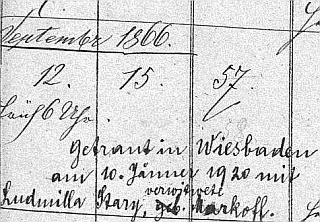 September 1866.
12. 15. 57.
früh 6 Uhr.
Getraut in Wiesbaden
am 10. Jänner 1920 mit
verwitwete
Ludmilla Stary, geb. Markofl.